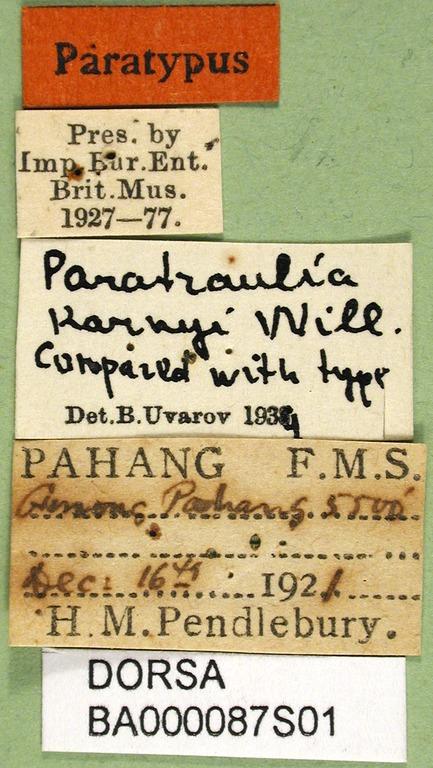 Paratypus
Pres. by
Imp. Bur. Ent.
Brit. Mus.
1927—77.
Paratraulia
Karnyi Will.
Compared with type
Det. B. Uvarov 1939
PAHANG F.M.S.
Pahang, 5500'
Dec: 16th 1921.
H. M. Pendlebury.
DORSA
BA000087S01